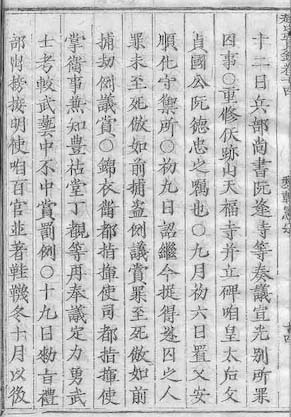 十二日兵部尚書阮逢時等奏議宣光別所罪
囚事○重修仸跡山天福寺并立碑咱皇太后父
貞國公阮德忠之囑也○九月初六日置乂安
順化守禦所○初九日詔繼今捉得逃囚之人
罪未至死做如前捕盗例議賞罪至死做如前
捕刼例議賞○錦衣衛都指揮使司都指揮使
掌衛事兼知豊祜堂丁覩等再奏議定力勇武
士考較武藝中不中賞罰例○十九日勅旨禮
部出榜接明使咱百官並著鞋韈冬十月以後